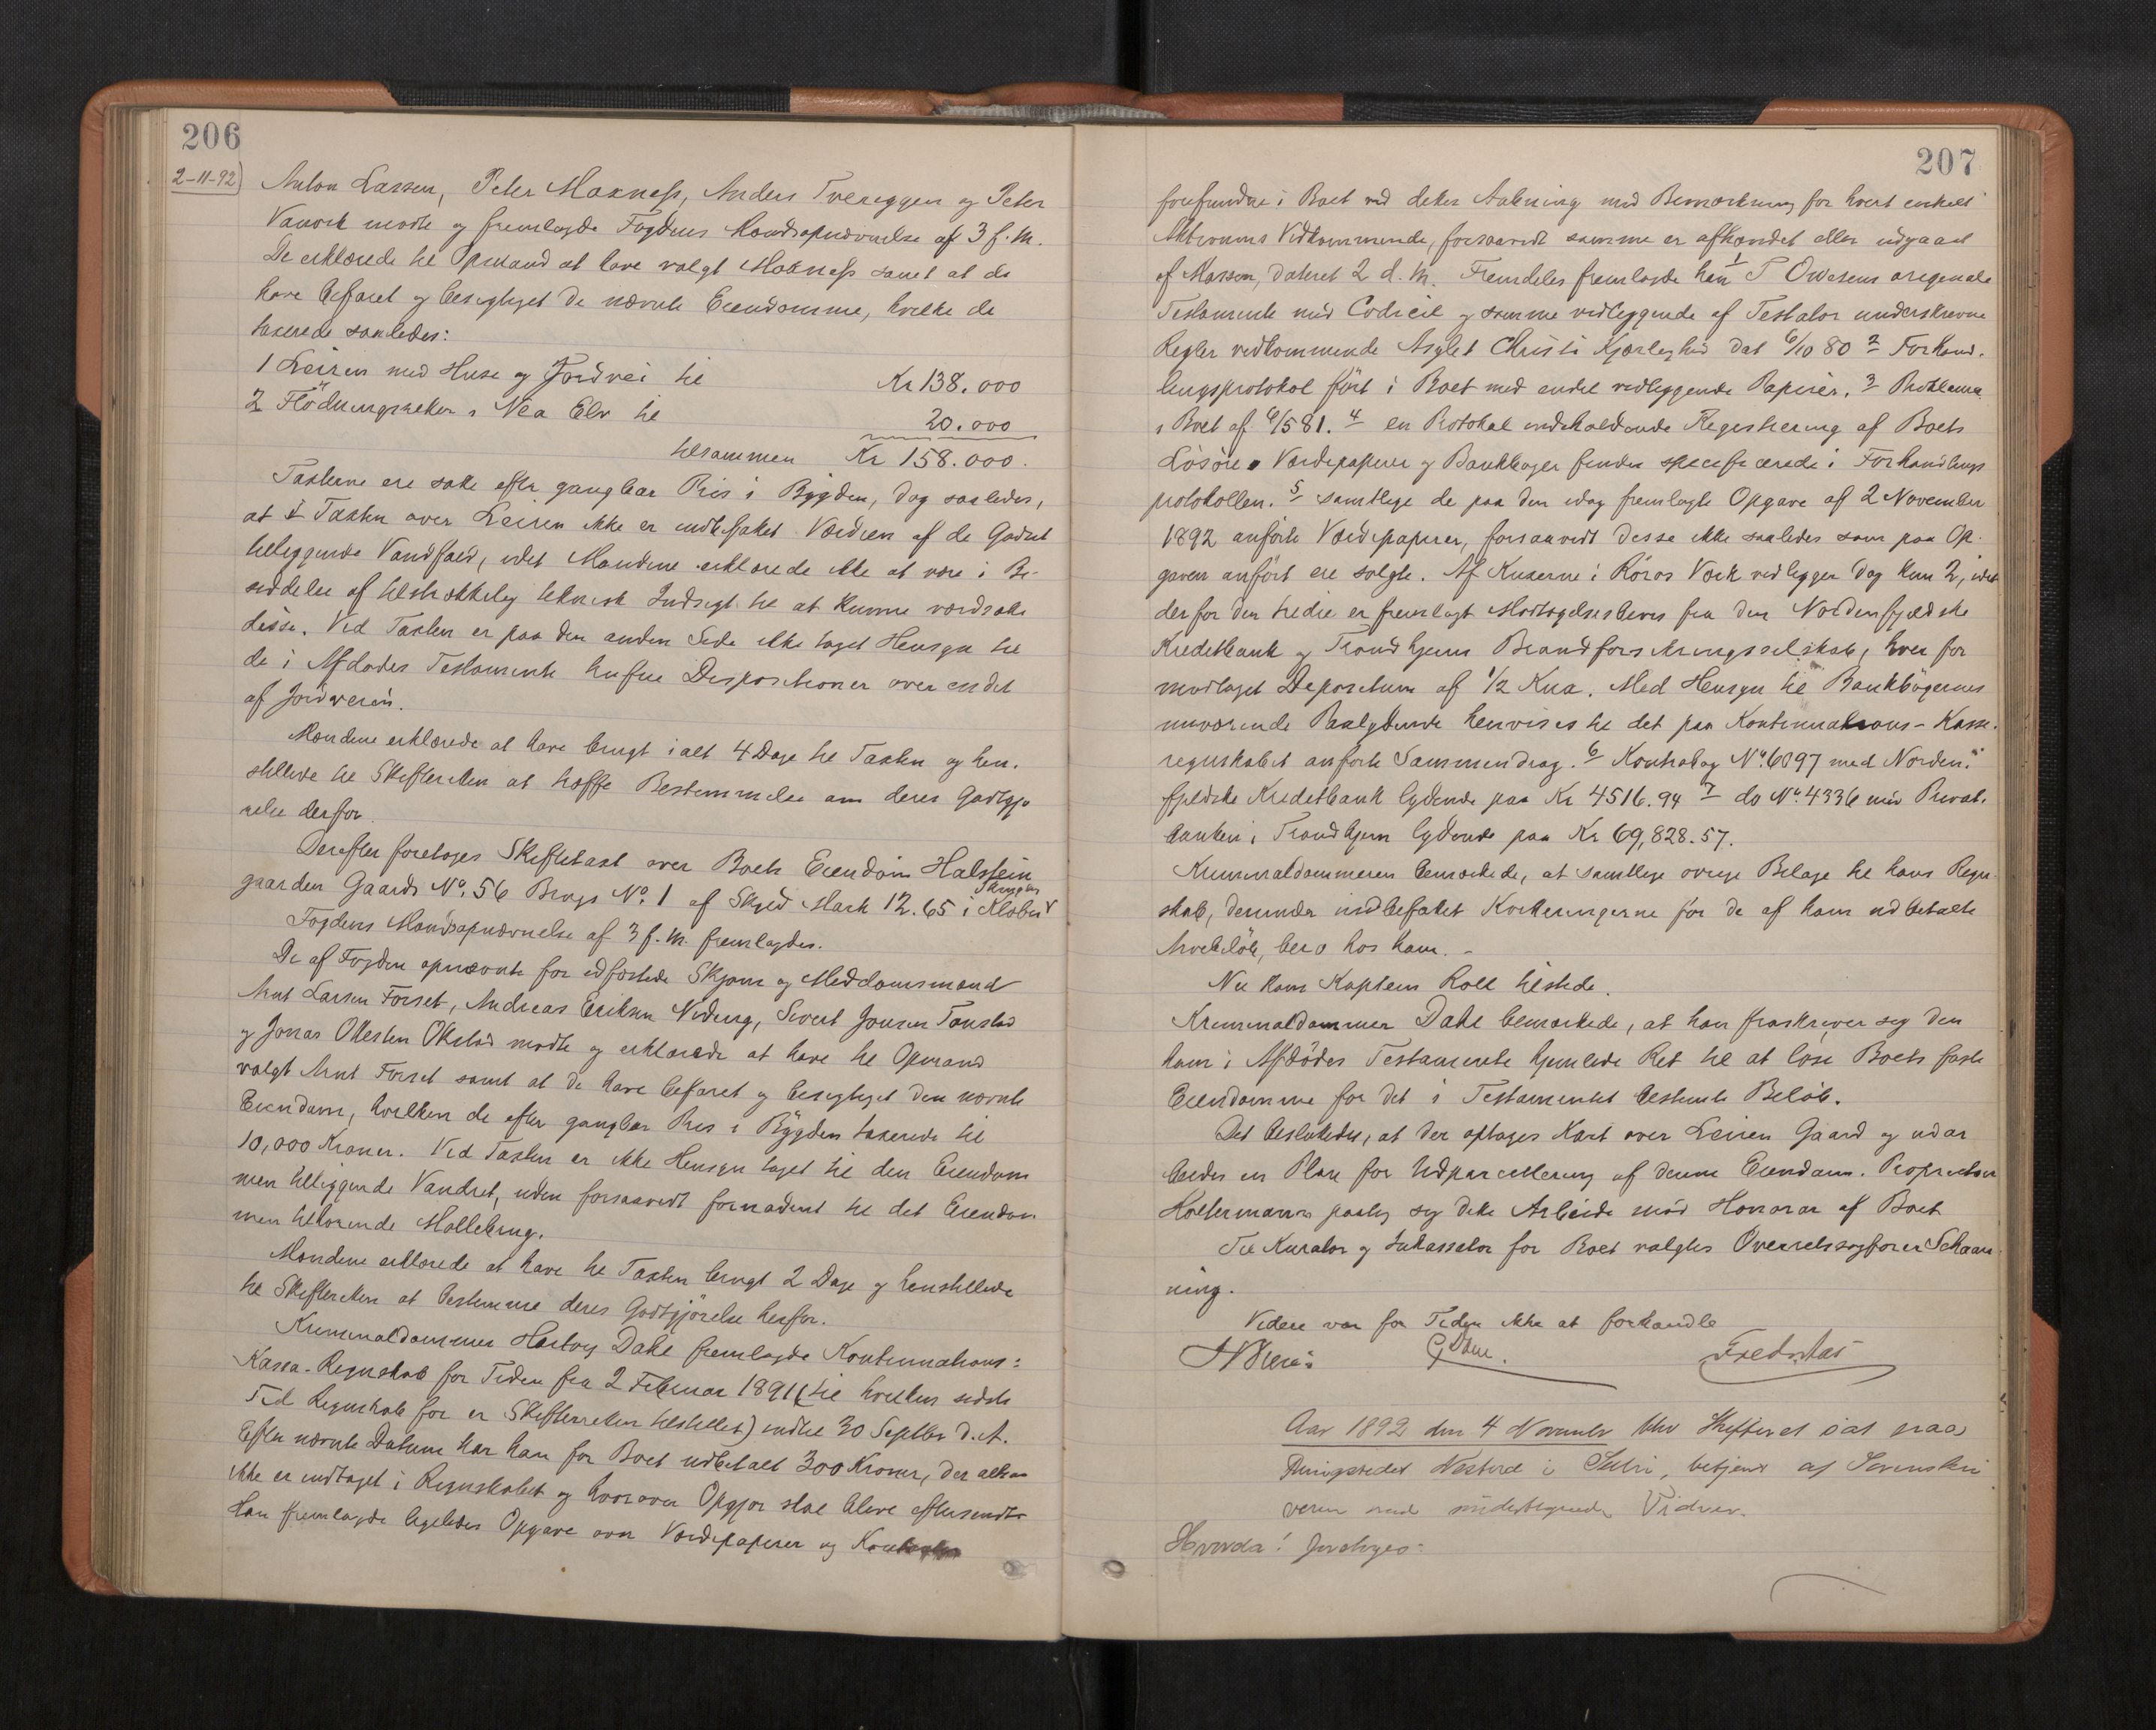 206
2-11-92)
Anton Lassen, Peter Moxness, Anders Tvereggen og Peter
Vanvik mødte og fremlagde Fogdens Mandsopnævnelse af 3 f. M.
De erklærede til Opmand at have valgt Moxness samt at de
have befaret og besigtiget de nævnte Eiendomme, hvilke de
taxerede saaledes:
1 Leiren med Huse og Jordvei til Kr 138.000
2 Flödningsretten i Nea Elv til 20.000
tilsammen Kr 158.000.
Taxterne ere satte efter gangbar Pris i Bygden, dog saaledes,
at i Taxten over Leiren ikke er indbefattet Værdien af de Godset
tilliggende Vandfald, idet Mændene erklærede ikke at være i Be-
siddelse af tilstrækkelig teknisk Indsigt til at kunne værdsætte
disse. Ved Taxten er paa den anden Side ikke taget Hensyn til
de i Afdødes Testamente trufne Dispositioner over endel
af Jordveien.
Mændene erklærede at have brugt ialt 4 Dage til Taxten og hen-
stillede til Skifteretten at træffe Bestemmelse om deres Godtgjø
relse derfor.
Derefter foretoges Skiftetaxt over Boets Eiendom Halstein
gaarden Gaards No. 56 Brugs No. 1 af Skyld Mark 12.65 i Klæbu
Fogdens Mandsopnævnelse af 3 f. M. fremlagdes.
De af Fogden opnævnte før edfæstede Skjøns og Meddomsmænd
Arnt Larsen Forset, Andreas Eriksen Nideng, Sivert Jonsen Tanstad
og Jonas Olesten Okstad mødte og erklærede at have til Opmand
valgt Arnt Forset samt at de have befaret og besigtiget den nævnte
Eiendom, hvilken de efter gangbar Pris i Bygden taxerede til
10,000 Kroner. Ved Taxten er ikke Hensyn taget til den Eiendom
men tilliggende Vandret, uden forsaavidt fornødent til det Eiendom
men tilhørende Møllebrug.
Mændene erklærede at have til Taxten brugt 2 Dage og henstillede
til Skifteretten at bestemme deres Godtgjörelse herfor.
Kriminaldommer Hartvig Dahl fremlagde Kontinuations:
Kassa-Regnskab for Tiden fra 2 Februar 1891 (til hvilken sidste
Tid Regnskab før er Skifteretten tilstillet) indtil 30 Septbr d. A.
Efter nævnte Datum har han for Boet udbetalt 300 Kroner, der altsaa
ikke er indtaget i Regnskabet og hvorover Opgjør skal blive eftersendt.
Han fremlagde ligeledes Opgave over Værdipapirer og
207
forefundne i Boet ved dettes Aabning med Bemærkning for hvert enkelt
Aktivums Vidkommende, forsaavidt samme er afhændet eller udgaaet
af Massen, dateret 2 d. M. Fremdeles fremlagde han 1 T Owesens originale
Testamente med Codicil og samme vedliggende af Testator underskrevne
Regler vedkommende Asylet Christi Kjærlighed dat 6/10 80 2 Forhand-
lingsprotokol ført i Boet med endel vedliggende Papirer. 3 Proklama
i Boet af 6/5 81. 4 en Protokol indeholdende Registrering af Boets
Løsøre. Værdipapirer og Bankbøger findes specificerede i Forhandlings
protokollen. 5 samtlige de paa den idag fremlagte Opgave af 2 November
1892 anførte Værdipapirer, forsaavidt disse ikke saaledes som paa Op-
gaven anført ere solgte. Af Kuxerne i Röros Værk vedligger dog kun 2, idet
der for den tredie er fremlagt Modtagelsesbevis fra den Nordenfjeldske
Kreditbank og Trondhjems Brandforsikringsselskab, hver for
modtaget Depositum af 1/2 Kux. Med Hensyn til Bankbögernes
nuværende Paalydende henvises til det paa Kontinuations-Kasse-
regnskabet anførte Sammendrag. 6 Kontrabog No. 6097 med Norden-
fjeldske Kreditbank lydende paa Kr 4516.94 7 do No. 4336 med Privat-
banken i Trondhjem lydende paa Kr 69,828.57.
Kriminaldommeren bemærkede, at samtlige øvrige Bilage til hans Regn-
skab, derunder indbefattet Kvitteringerne for de af ham udbetalte
Arvebeløb, bero hos ham. -
Nu kom Kaptein Roll tilstede.
Kriminaldommer Dahl bemærkede, at han fraskriver sig den
ham i Afdødes Testamente hjemlede Ret til at løse Boets faste
Eiendomme for det i Testamentet bestemte Beløb.
Det besluttedes, at der optages Kart over Leiren Gaard og udar
beides en Plan for Udparcellering af denne Eiendom. Proprietær
Holtermann paatog sig dette Arbeide mod Honorar af Boet
Til Kurator og Inkassator for Boet valgtes Overretssagfører Schaan-
ning.
Videre var for Tiden ikke at forhandle
Aar 1892 den 4 November blev Skifteret sat paa
Thingstedet Nesterd i Selbu, betjent af Sorenskri
veren med undertegnede Vidner.
Hvorda! foretoges: